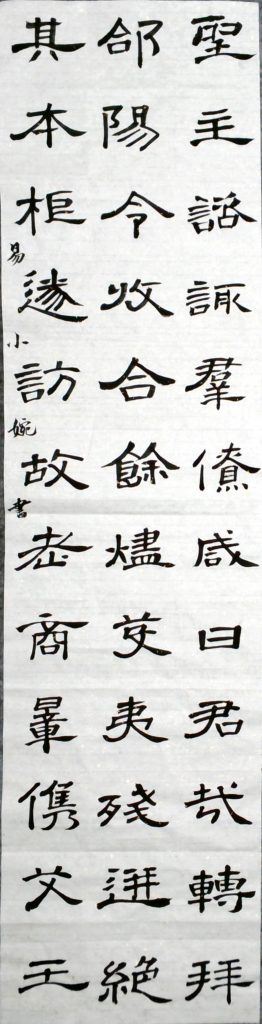 聖主諮諏羣僚咸曰君哉轉拜
郃陽令收合餘燼芟夷殘迸絕
其本柢遂訪故老商量儁艾王
易小婉書